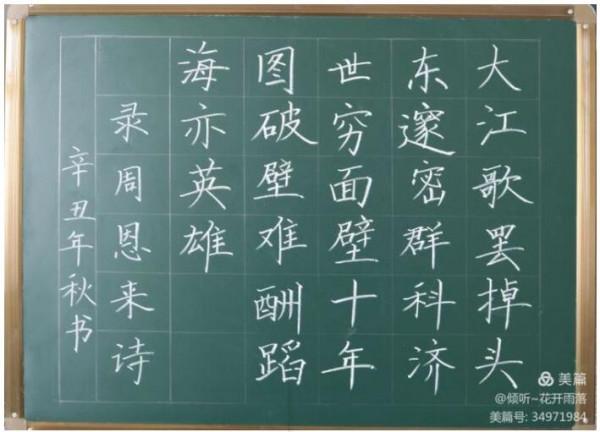 大江歌罢掉头
东邃密群科济
世穷面壁十年
图破壁难酬蹈
海亦英雄
录周恩来诗
辛丑年秋书
美篇
@倾听~花开雨落
美篇号: 34971984